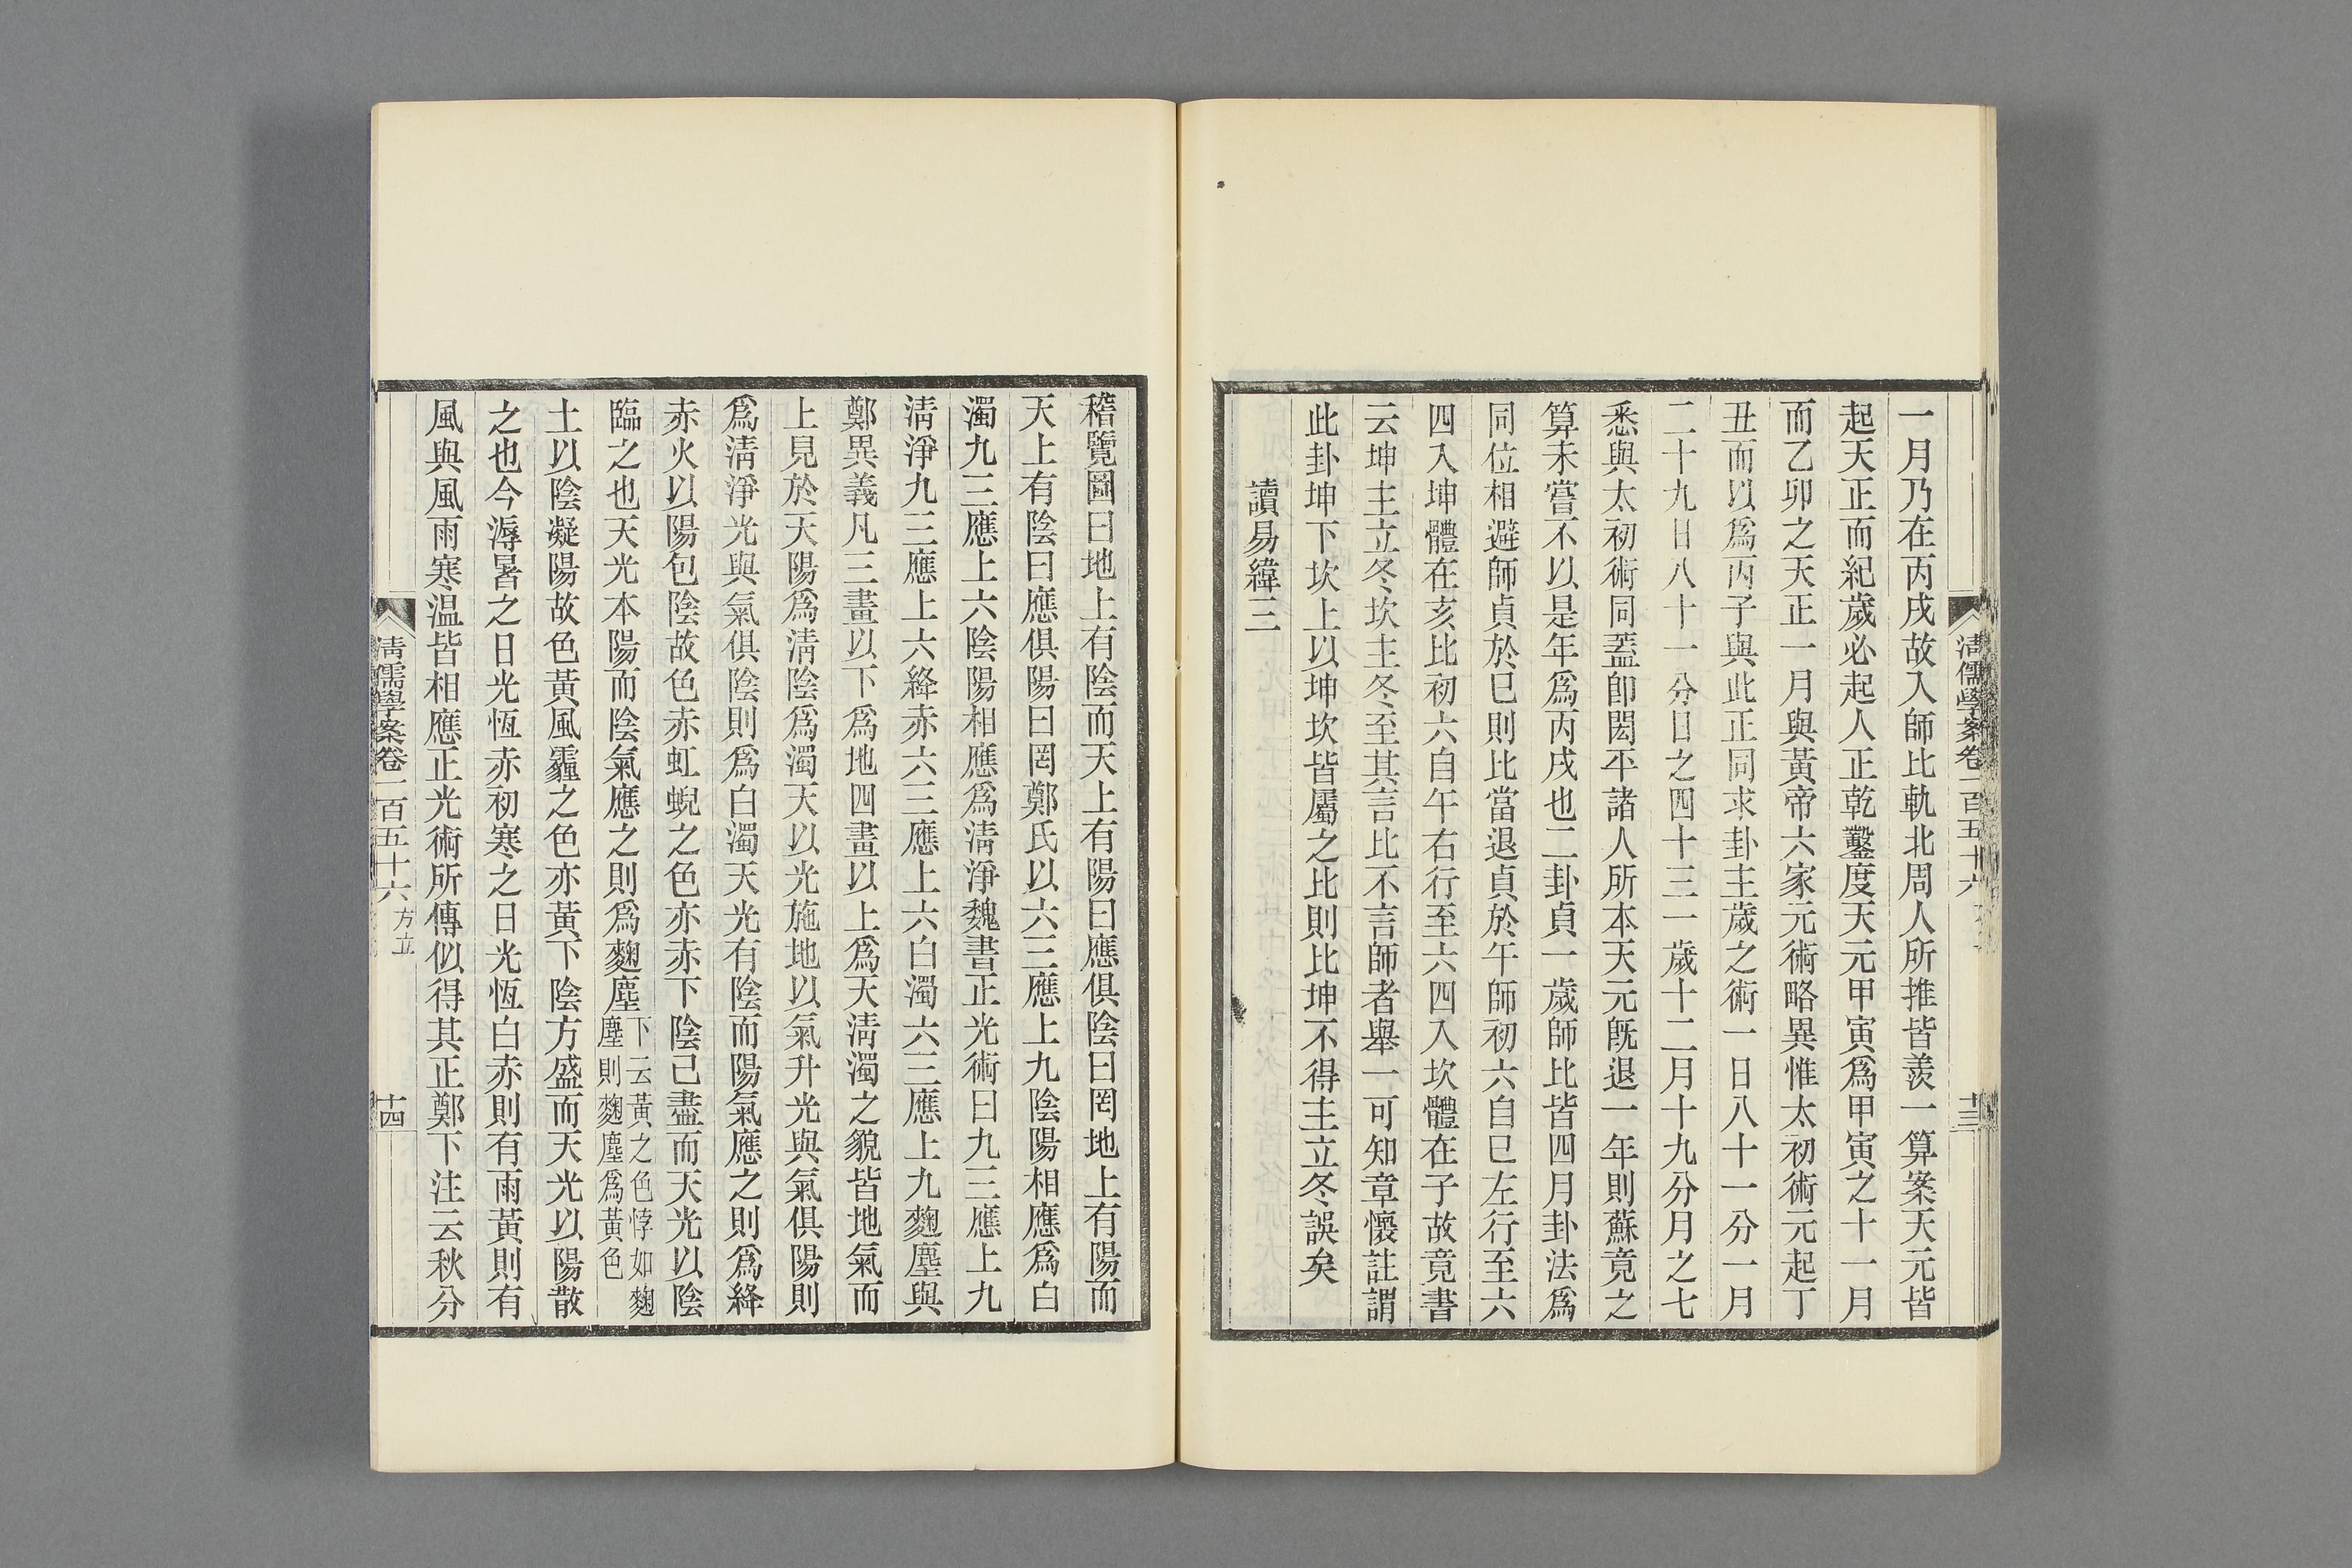 清儒學案卷一百五十六
十三
一月乃在丙戌故入師比軌北周人所推皆羨一算案天元皆
起天正而紀歲必起人正乾鑿度天元甲寅爲甲寅之十一月
而乙卯之天正一月與黃帝六家元術略異惟太初術元起丁
丑而以爲丙子與此正同求卦主歲之術一日八十一分一月
二十九日八十一分日之四十三一歲十二月十九分月之七
悉與太初術同蓋卽閎平諸人所本天元旣退一年則蘇竟之
算未嘗不以是年爲丙戌也二卦貞一歲師比皆四月卦法爲
同位相避師貞於巳則比當退貞於午師初六自巳左行至六
四入坤體在亥比初六自午右行至六四入坎體在子故竟書
云坤主立冬坎主冬至其言比不言師者舉一可知章懷註謂
此卦坤下坎上以坤坎皆屬之比則比坤不得主立冬誤矣
讀易緯三
稽覽圖曰地上有陰而天上有陽曰應俱陰曰罔地上有陽而
天上有陰曰應俱陽曰罔鄭氏以六三應上九陰陽相應爲白
濁九三應上六陰陽相應爲淸淨魏書正光術曰九三應上九
淸淨九三應上六絳赤六三應上六白濁六三應上九麴塵與
鄭異義凡三畫以下爲地四畫以上爲天淸濁之貌皆地氣而
上見於天陽爲淸陰爲濁天以光施地以氣升光與氣俱陽則
爲淸淨光與氣俱陰則爲白濁天光有陰而陽氣應之則爲絳
赤火以陽包陰故色赤虹蜺之色亦赤下陰已盡而天光以陰
臨之也天光本陽而陰氣應之則爲麴塵下云黃之色悖如麴塵則麴塵爲黃色
土以陰凝陽故色黃風霾之色亦黃下陰方盛而天光以陽散
之也今溽暑之日光恆赤初寒之日光恆白赤則有雨黃則有
風與風雨寒温皆相應正光術所傳似得其正鄭下注云秋分
淸儒學案卷一百五十六 方立
十四